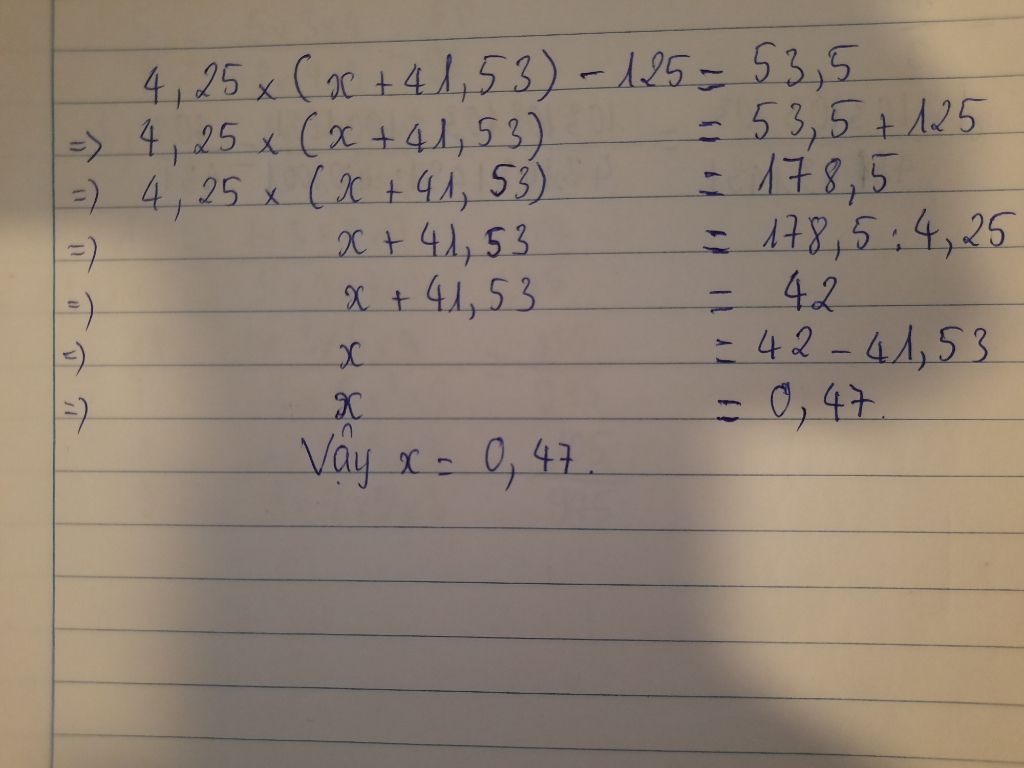 4,25 × (x + 41,53) - 125 = 53,5
=> 4,25 × (x + 41,53) = 53,5 + 125
=) 4,25 × (x + 41,53) = 178,5
=) x + 41,53 = 178,5 : 4,25
=) x + 41,53 = 42
=) x = 42 - 41,53
=) x = 0,47.
Vậy x = 0,47.